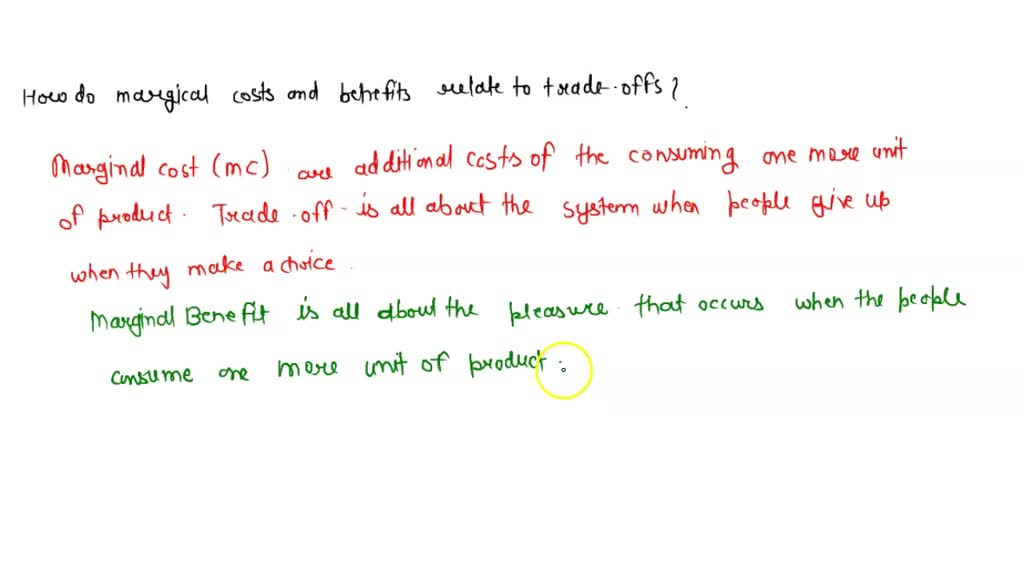 How do margical costs and benefits relate to trade-offs?
Marginal cost (mc) are additional costs of the consuming one more unit
of product. Trade-off is all about the system when people give up
when they make a choice.
Marginal Benefit is all about the pleasure that occurs when the people
consume one more unit of product.